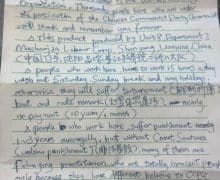 Organization, Thousands
persicution of the Chinese Communist Party Government
will thank and remember you forever.
△ This product produced by Unit 8, Department 2,
Masanjia Labour Camp, Shenyang, Liaoning, China
(中国,辽宁,沈阳,马三家
△ people who work here have to work 15 hours a day
with out Saturday Sunday break and any holidays.
otherwise they will suffer torturement
beat and rude remark
nearly
no payment (10 yuan/1 month)
△ people who work here, suffer punishment
1~3 years averagely, but without Court Sentence
many of them are
Falun gong practitioner, who are totally innocent people
only because they have different believing to CCPG